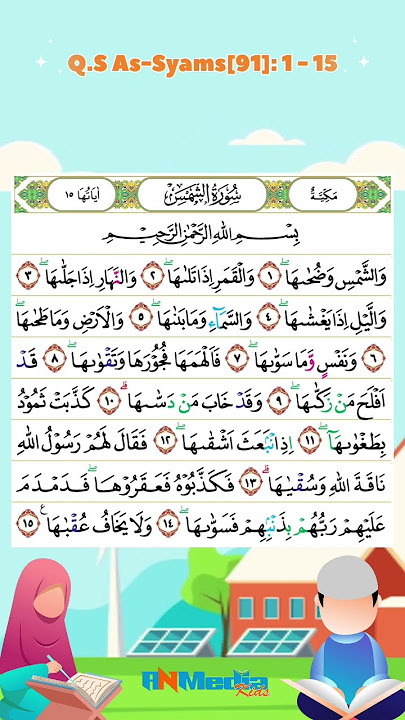 Q.S As-Syams[91]: 1 - 15
مَكِّيَّةٌ سُوْرَةُ الشَّمْسِ اٰيَاتُهَا ١٥
بِسْمِ اللّٰهِ الرَّحْمٰنِ الرَّحِيْمِ
وَالشَّمْسِ وَضُحٰىهَاۖ ١ وَالْقَمَرِ اِذَا تَلٰىهَاۖ ٢ وَالنَّهَارِ اِذَا جَلّٰىهَاۖ ٣
وَالَّيْلِ اِذَا يَغْشٰىهَاۖ ٤ وَالسَّمَاۤءِ وَمَا بَنٰىهَاۖ ٥ وَالْاَرْضِ وَمَا طَحٰىهَاۖ
٦ وَنَفْسٍ وَّمَا سَوّٰىهَاۖ ٧ فَاَلْهَمَهَا فُجُوْرَهَا وَتَقْوٰىهَاۖ ٨ قَدْ
اَفْلَحَ مَنْ زَكّٰىهَاۖ ٩ وَقَدْ خَابَ مَنْ دَسّٰىهَاۗ ١٠ كَذَّبَتْ ثَمُوْدُ
بِطَغْوٰىهَآۖ ١١ اِذِ انْۢبَعَثَ اَشْقٰىهَاۖ ١٢ فَقَالَ لَهُمْ رَسُوْلُ اللّٰهِ
نَاقَةَ اللّٰهِ وَسُقْيٰهَاۗ ١٣ فَكَذَّبُوْهُ فَعَقَرُوْهَاۖ فَدَمْدَمَ
عَلَيْهِمْ رَبُّهُمْ بِذَنْۢبِهِمْ فَسَوّٰىهَاۖ ١٤ وَلَا يَخَافُ عُقْبٰهَا ࣖ ١٥
ANMedia
Kids